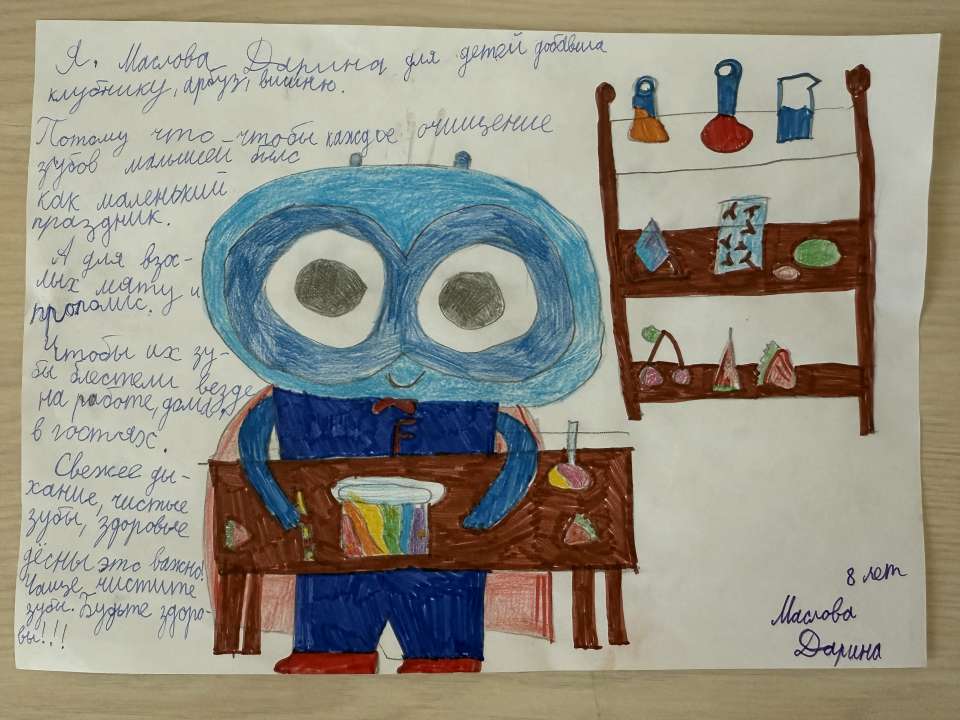 Я, Маслова Дарина для детей добавила
клубнику, арбуз, вишню.
Потому что чтобы каждое очищение
зубов малышей было
как маленький
праздник.
А для взо-
лых мяту и
прополис.
Чтобы их зу-
бы блестели везде
на работе, дома,
в гостях.
Свежее ды-
хание, чистые
зубы, здоровые
дёсны это важно.
Чаще чистите
зубы. Будьте здоро-
вы!!!
8 лет
Маслова
Дарина